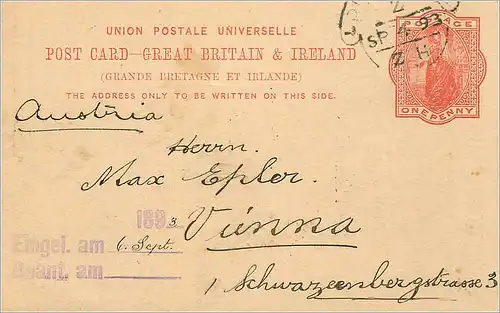 UNION POSTALE UNIVERSELLE
POST CARD—GREAT BRITAIN & IRELAND
(GRANDE BRETAGNE ET IRLANDE)
THE ADDRESS ONLY TO BE WRITTEN ON THIS SIDE.
POSTAGE
ONE PENNY
Z
SP 4 93
N H
Austria
Herrn.
Max Epler.
Vienna
1 Schwarzeenbergstrasse 3
1893
Eingel. am 6. Sept.
Beant. am